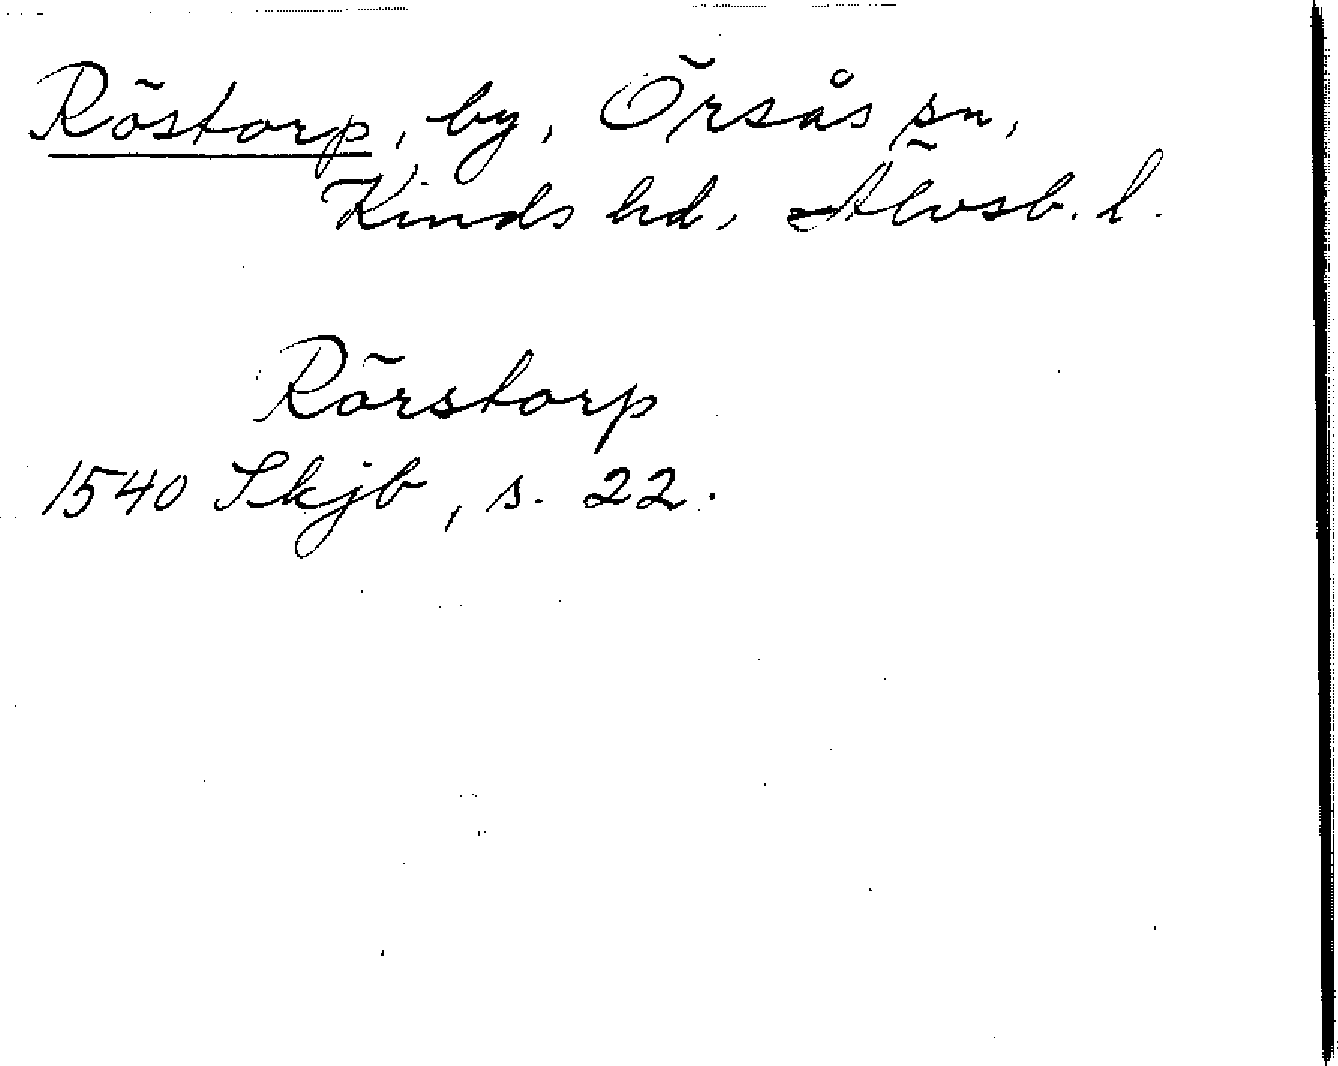 Röstorp, by, Örsås sn,
Kinds hd, Älvsb. l.
Rörstorp
1540 Skjb, s. 22.